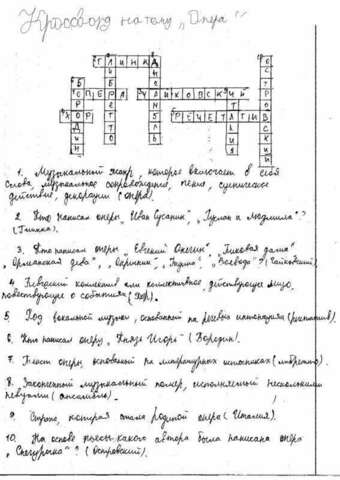 Кроссворд на тему „Опера"
ГЛИНКА
ОПЕРА
ЧАЙКОВСКИЙ
ХОР
РЕЧЕТАТИВ
БОРОДИН
ЛИБРЕТТО
АНСАМБЛЬ
ИТАЛИЯ
ОСТРОВСКИЙ
1. Музыкальный жанр, которое включает в себя
слова, музыкальное сопровождение, пение, сценическое
действие, декорации (опера).
2. Кто написал оперы „Иван Сусанин", „Руслан и Людмила"?
(Глинка).
3. Кто написал оперы „Евгений Онегин", „Пиковая дама",
„Орлеанская дева", „Опричник", „Воевода"? (Чайковский).
4. Певческий коллектив или коллективное действующее лицо,
повествующее о событиях (Хор).
5. Род вокальной музыки, основанный на речевых интонациях (речитатив).
6. Кто написал оперу „Князь Игорь" (Бородин).
7. Текст оперы, основанный на литературных источниках (либретто).
8. Законченный музыкальный номер, исполняемый несколькими
певцами (ансамбль).
9. Страна, которая стала родиной оперы (Италия).
10. На основе пьесы какого автора была написана опера
„Снегурочка"? (Островский).